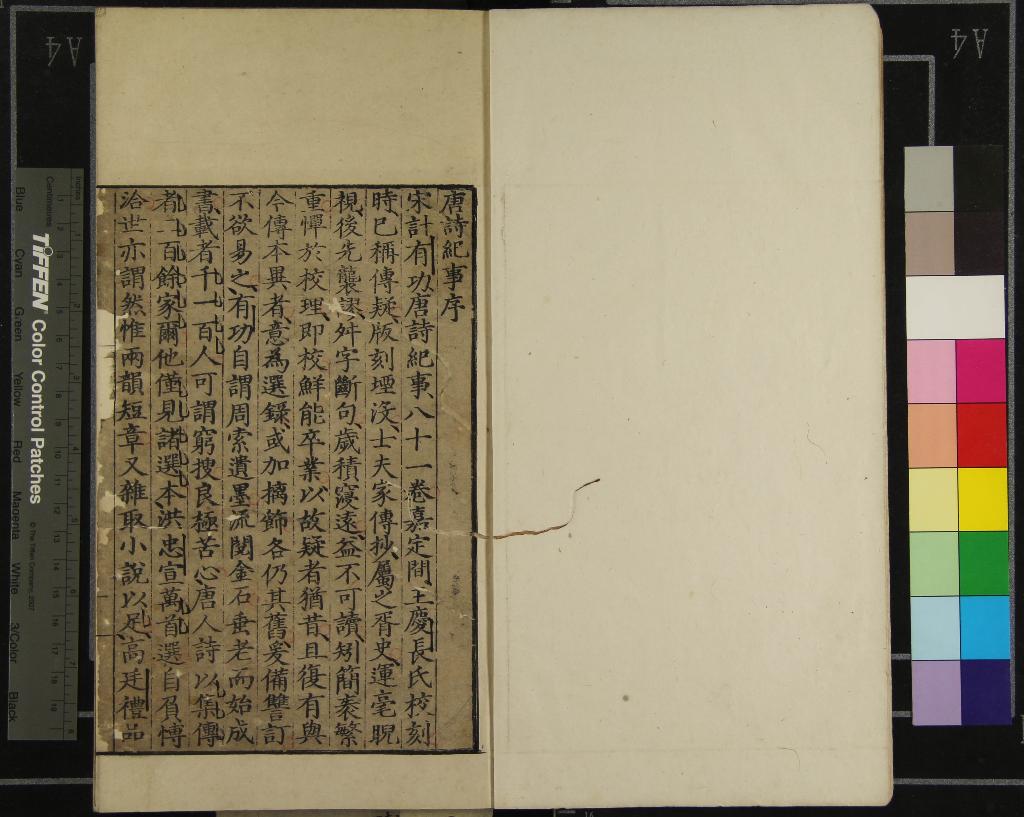 唐詩紀事序
宋計有功唐詩紀事八十一卷嘉定間王慶長氏校刻
時已稱傳疑版刻堙沒士夫家傳抄屬之胥史運毫睨
視後先襲謬舛字斷句歲積寖遠益不可讀矧簡袠繁
重憚於校理即校鮮能卒業以故疑者猶昔且復有與
今傳本異者意為選錄或加摛飾各仍其舊爰備讐訂
不欲易之有功自謂周索遺墨流閱金石垂老而始成
書載者千一百人可謂窮搜良極苦心唐人詩以集傳
者一百餘家爾他僅見諸選本洪忠宣萬首選自負博
洽世亦謂然惟兩韻短章又雜取小說以足高廷禮品
A4
A4
TIFFEN Color Control Patches
© The Tiffen Company, 2007
Centimetres
Inches
Blue
Cyan
Green
Yellow
Red
Magenta
White
3/Color
Black